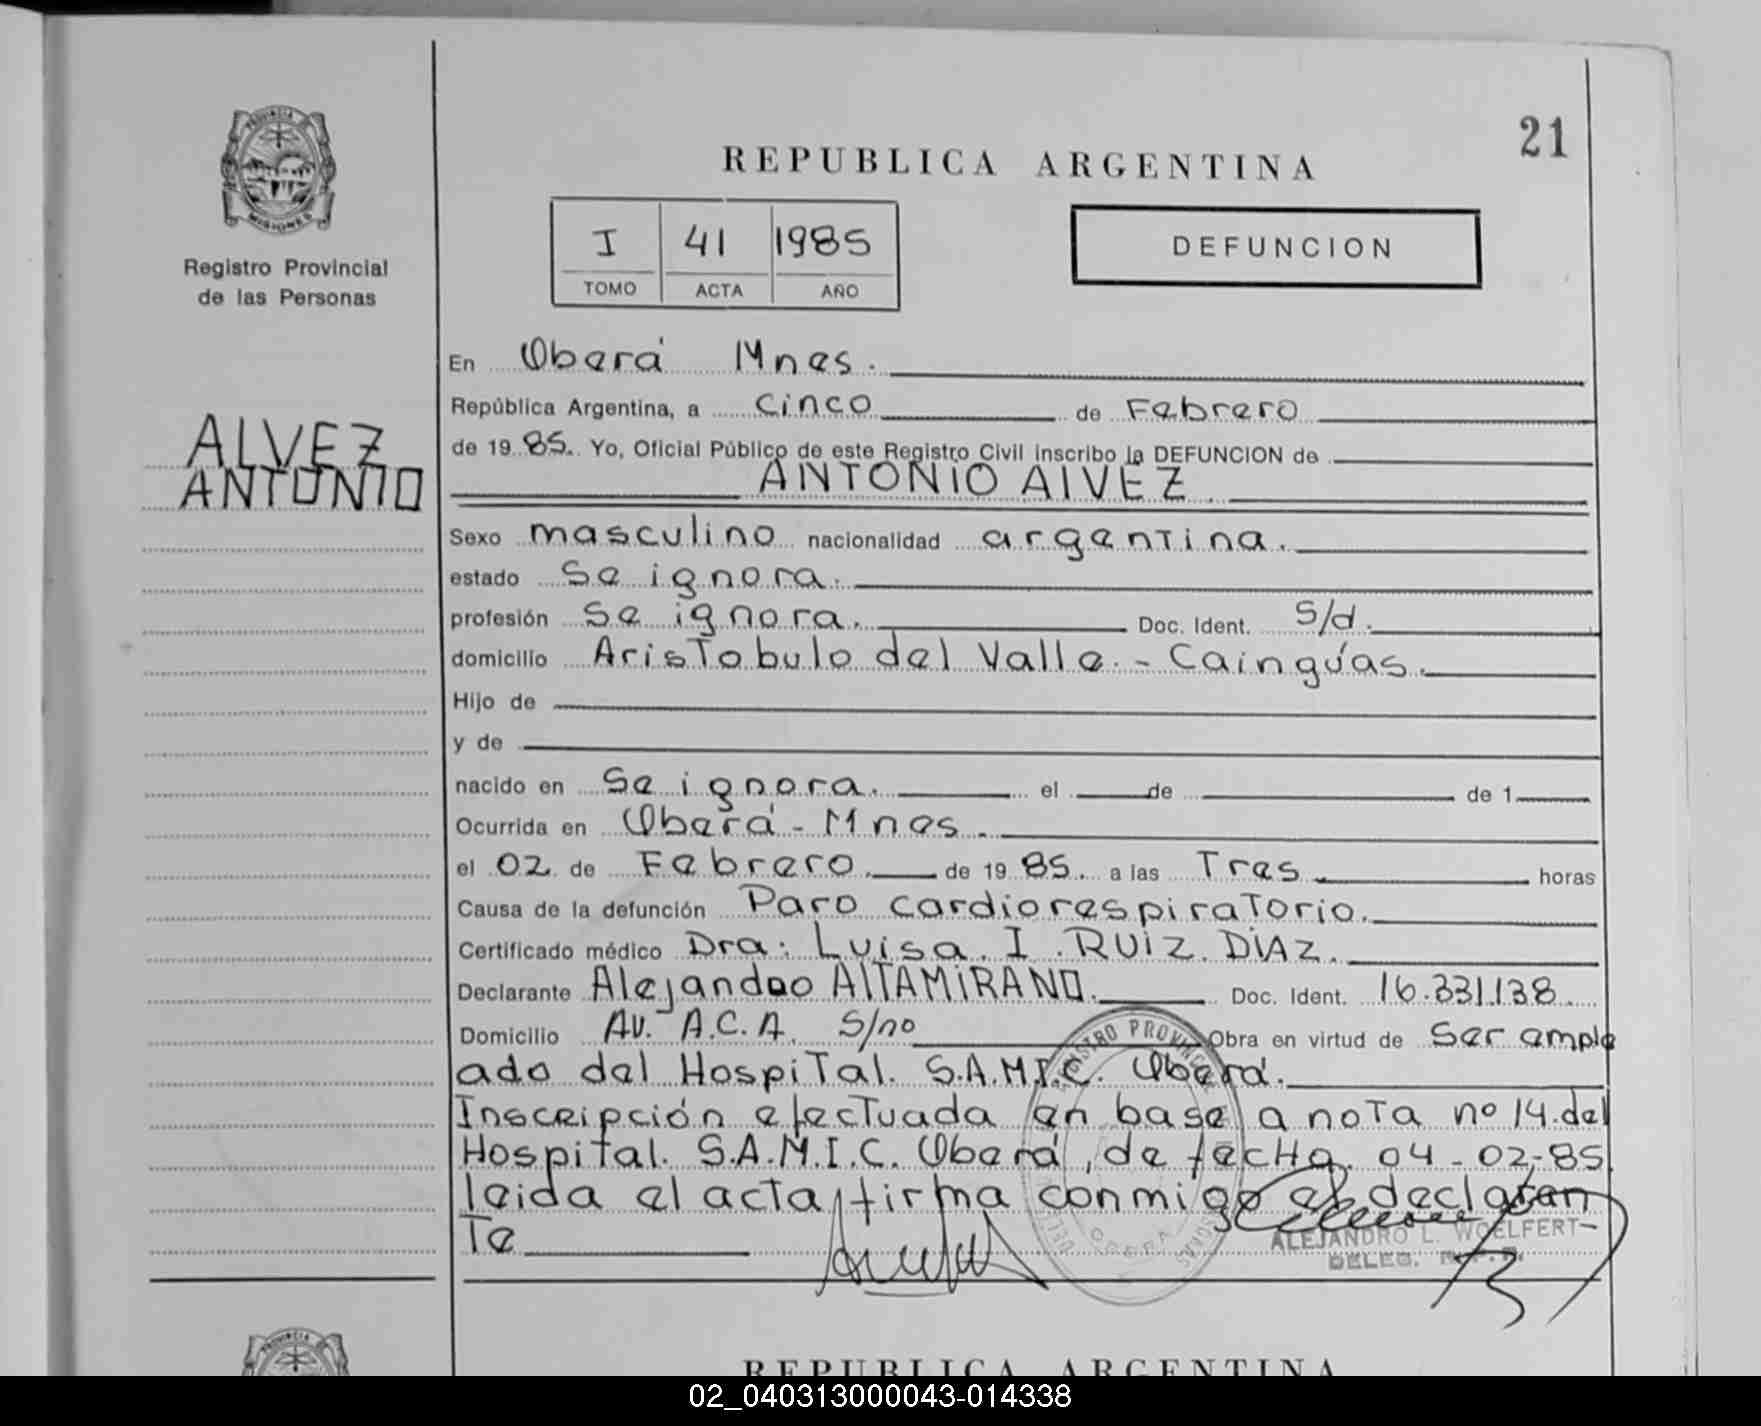 PROVINCIA
MISIONES
21
REPUBLICA ARGENTINA
I 41 1985
TOMO ACTA AÑO
DEFUNCION
Registro Provincial
de las Personas
ALVEZ
ANTONIO
En Oberá Mnes.
República Argentina, a cinco de Febrero
de 1985. Yo, Oficial Público de este Registro Civil inscribo la DEFUNCION de
ANTONIO AlVEZ
Sexo masculino nacionalidad argentina.
estado Se ignora.
profesión Se ignora. Doc. Ident. S/d.
domicilio Aristobulo del Valle. - Cainguás.
Hijo de
y de
nacido en Se ignora. el de de 1
Ocurrida en Oberá - Mnes.
el 02 de Febrero. de 1985. a las Tres horas
Causa de la defunción Paro cardiorespiratorio.
Certificado médico Dra: Luisa. I. RUIZ. DIAZ.
Declarante Alejandro AlTAMIRANO. Doc. Ident. 16.331.138.
Domicilio Av. A.C.A. S/no Obra en virtud de Ser emple
ado del Hospital. S.A.M.I.C. Oberá.
Inscripción efectuada en base a nota no 14. del
Hospital. S.A.M.I.C. Oberá, de fecha. 04-02-85.
leida el acta, firma conmigo el declaran
Te
REGISTRO PROVINCIAL
OBERA
ALEJANDRO L. WOELFERT
DELEG. R.P.P.
PROVINCIA
REPUBLICA ARGENTINA
02_040313000043-014338